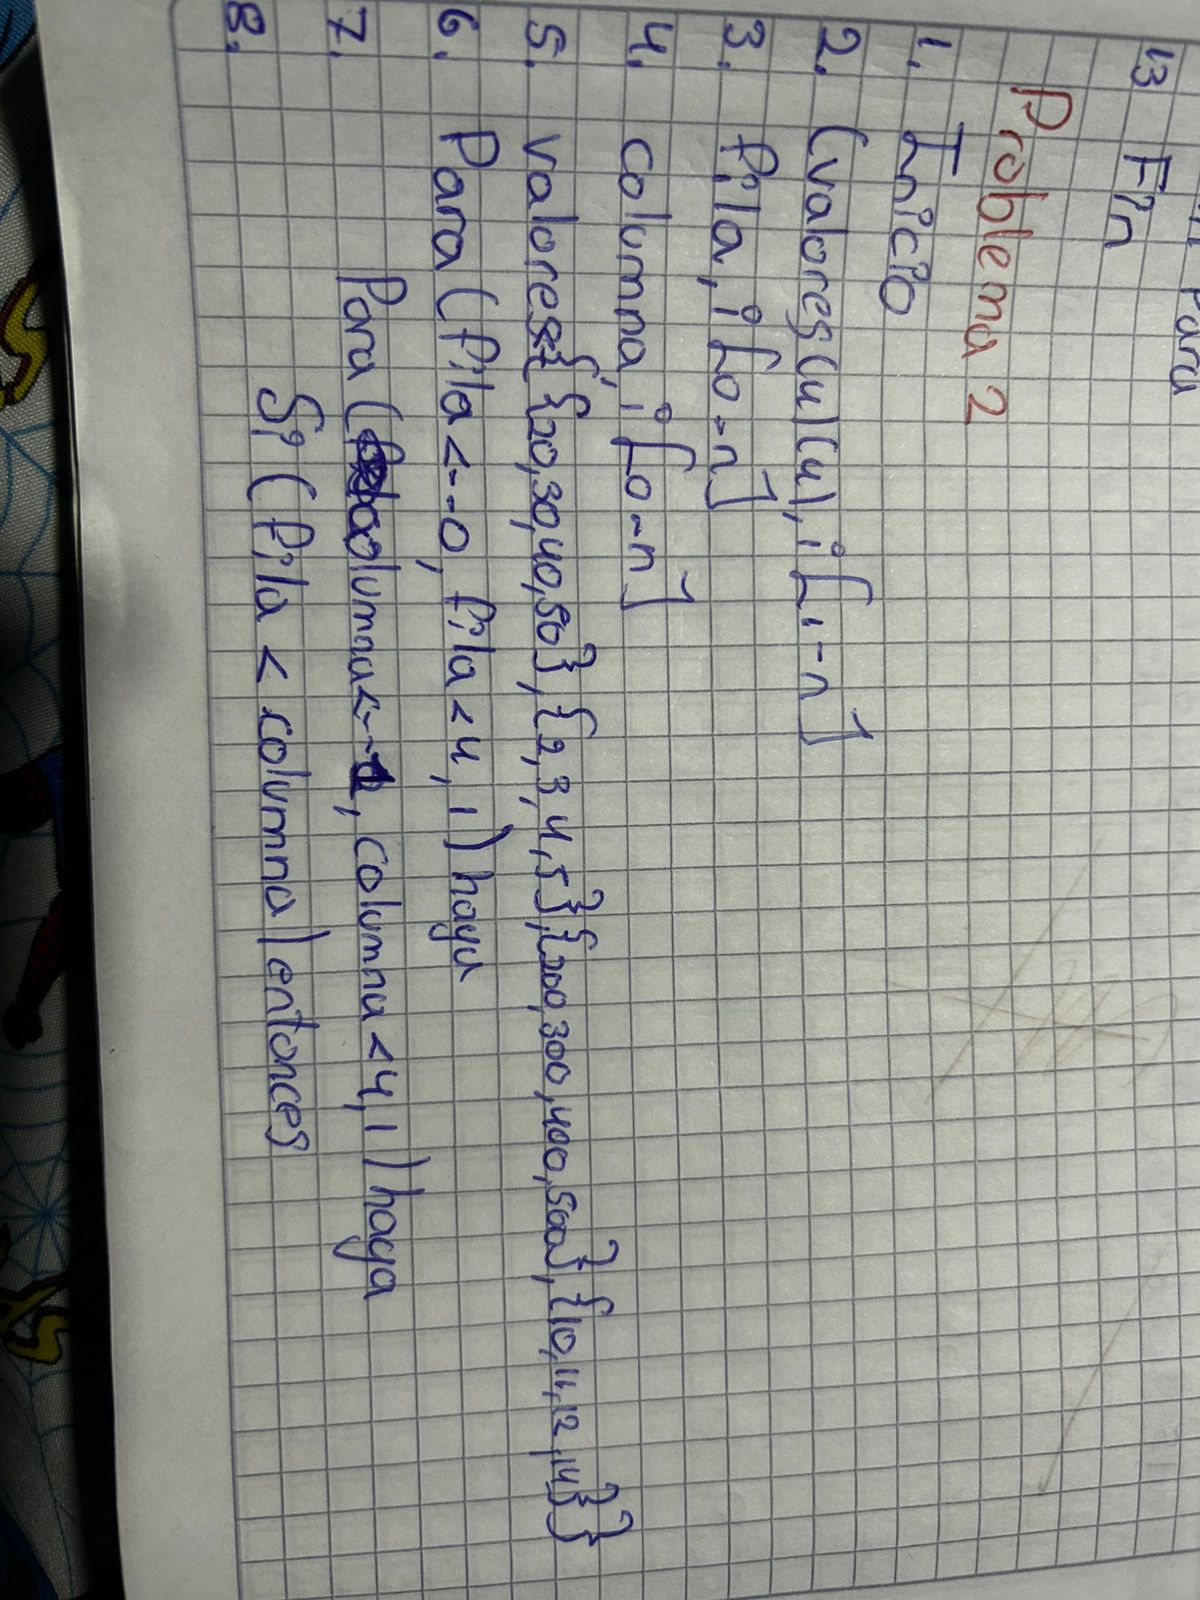 Para
13 Fin
Problema 2
1. Inicio
2. (valores(4)(4), i [1-n]
3. fila, i [0-n]
4. columna, i [0-n]
5. valores {{20,30,40,50},{2,3,4,5},{200,300,400,500},{10,11,12,14}}
6. Para (fila <-- 0, fila < 4, 1) haga
7. Para (columna <-- 1, columna < 4, 1) haga
8. Si (fila < columna) entonces